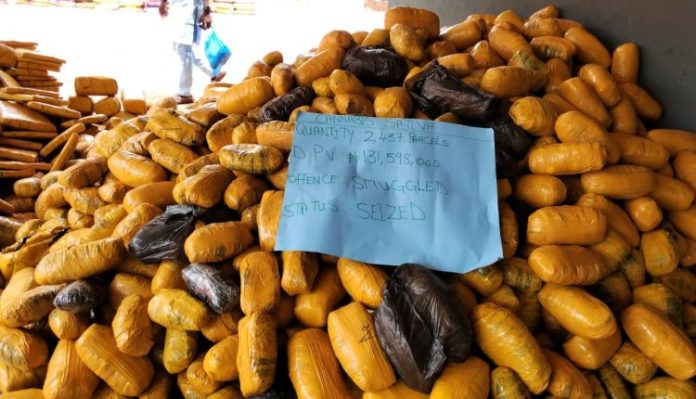 CANNABIS SATIVA
QUANTITY: 2,437 PARCELS
D.PV ₦131,598,000
OFFENCE: SMUGGLED
STATUS: SEIZED